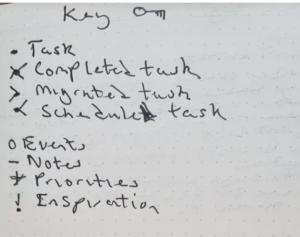 Key
• Task
× Completed task
> Migrated task
< Scheduled task
o Events
- Notes
* Priorities
! Enspiration